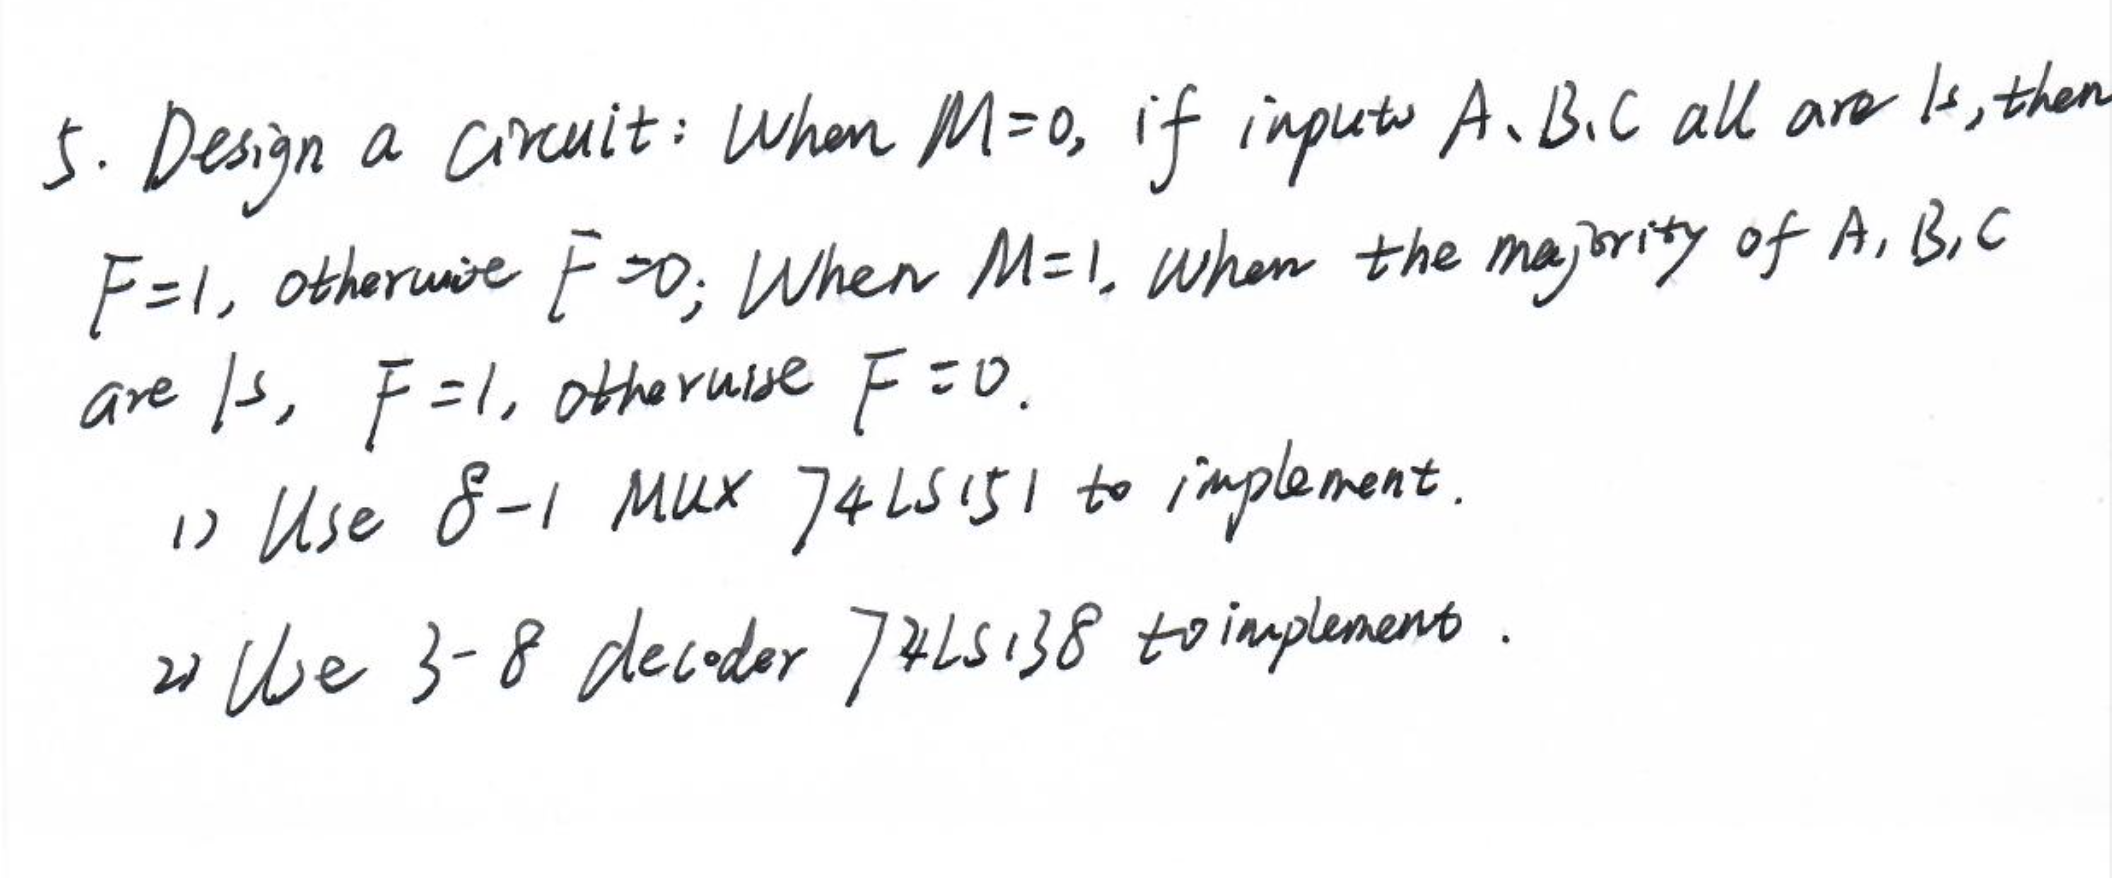 5. Design a circuit: When M=0, if inputs A、B、C all are 1s, then
F=1, otherwise F=0; When M=1, when the majority of A, B, C
are 1s, F=1, otherwise F=0.
1) Use 8-1 MUX 74LS151 to implement.
2) Use 3-8 decoder 74LS138 to implement.